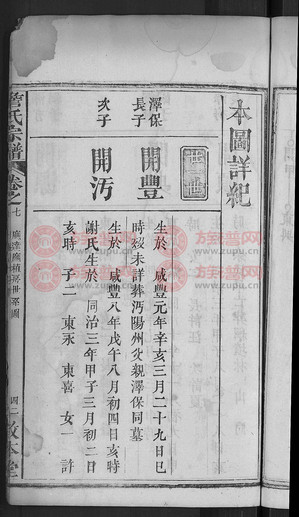 本圖詳紀
廿三世
澤保長子 開豐 生於咸豐元年辛亥三月二十九日巳時歿未詳葬沔陽州父親澤保同墓
次子 開沔 生於咸豐八年戊午八月初四日亥時
謝氏生於同治三年甲子三月初二日亥時 子二 東永 東喜 女一 許
管氏宗譜 卷之七
四二 敦本堂